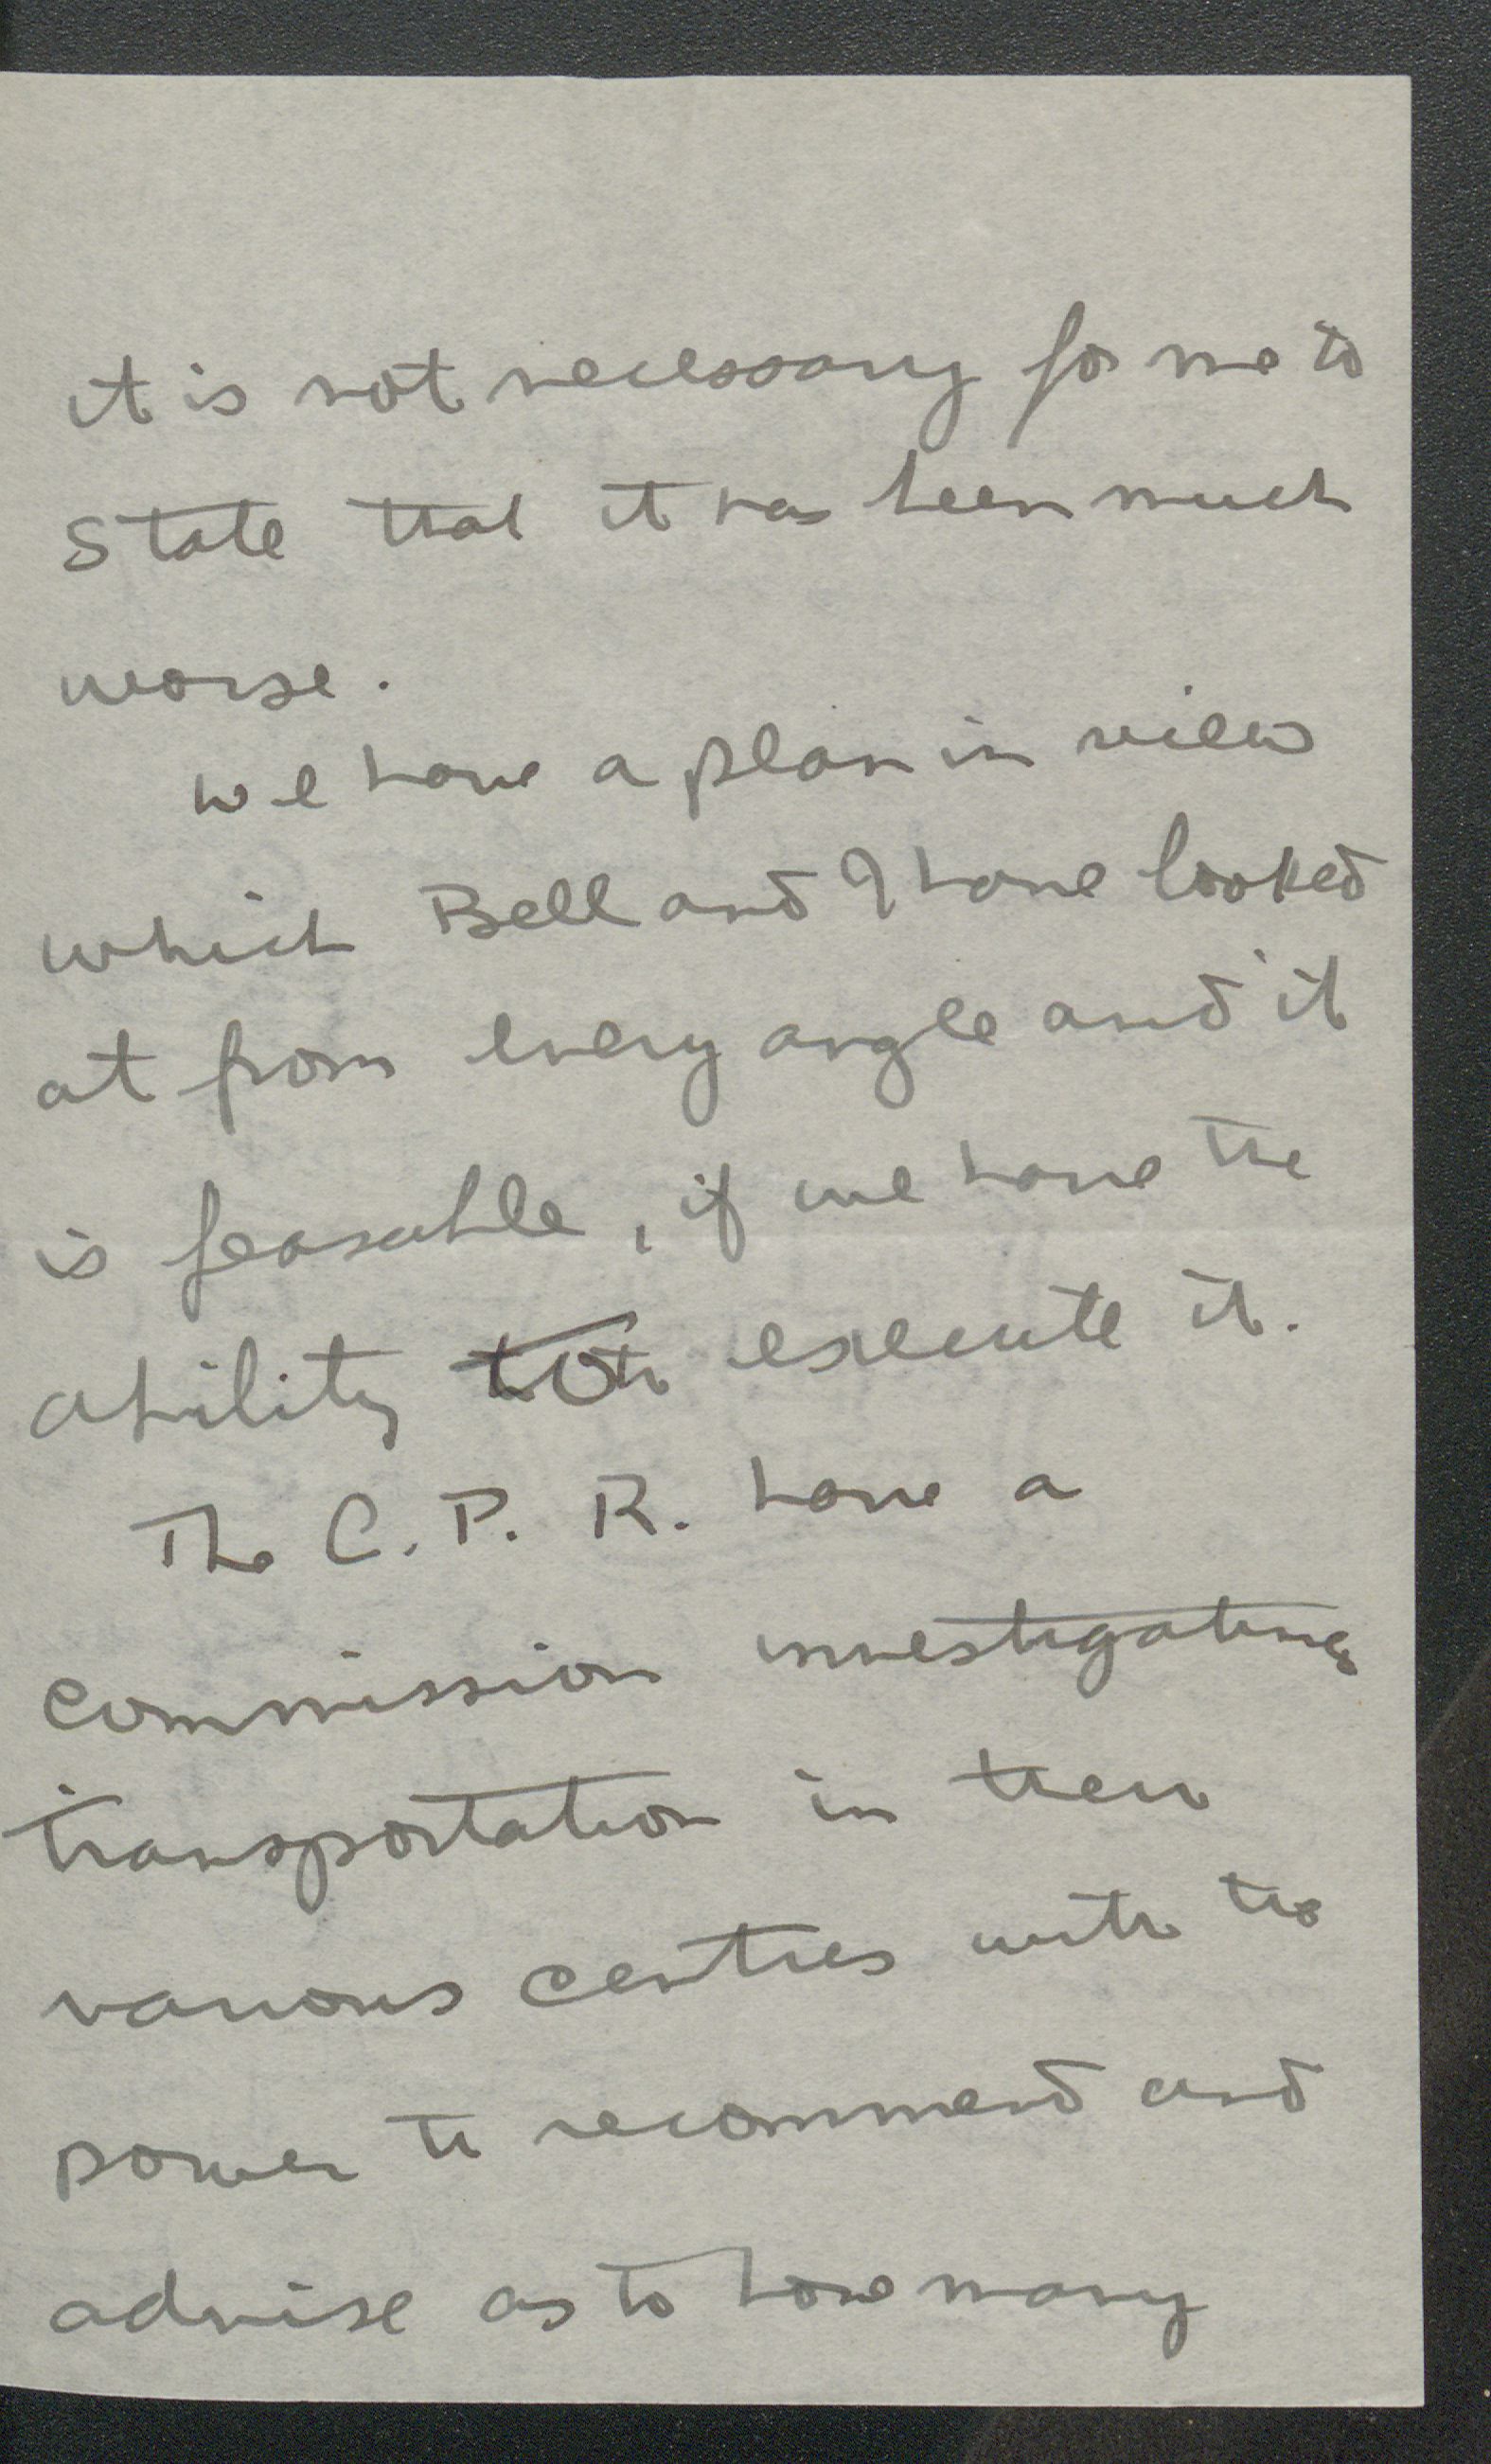 it is not necessary for me to
state that it has been much
worse.
we have a plan in view
which Bell and I have looked
at from every angle and it
is feasable, if we have the
ability to execute it.
The C. P. R. have a
commission investigating
transportation in their
various centres with the
power to recommend and
advise as to how many